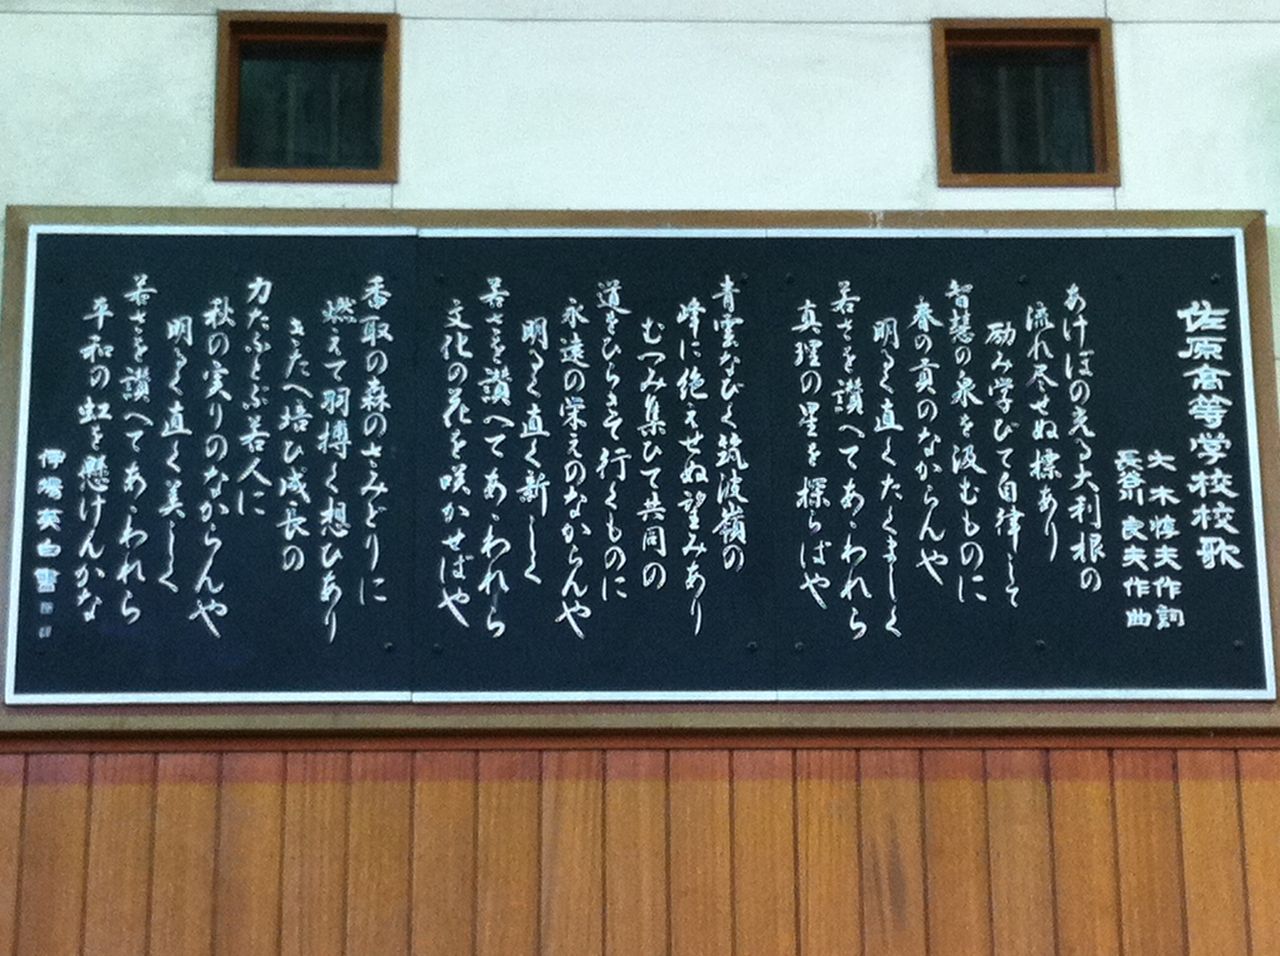 佐原高等学校校歌
大木惇夫作詞
長谷川良夫作曲
あけぼの光る大利根の
流れ尽せぬ標あり
励み学びて自律して
智慧の泉を汲むものに
春の貢のなからんや
明るく直くたくましく
若さを讃へてあゝわれら
真理の星を探らばや
青雲なびく筑波嶺の
峰に絶えせぬ望みあり
むつみ集ひて共同の
道をひらきて行くものに
永遠の栄えのなからんや
明るく直く新しく
若さを讃へてあゝわれら
文化の花を咲かせばや
香取の森のさみどりに
燃えて羽搏く想ひあり
きたへ培ひ成長の
力たふとぶ若人に
秋の実りのなからんや
明るく直く美しく
若さを讃へてあゝわれら
平和の虹を懸けんかな
伊場英白書